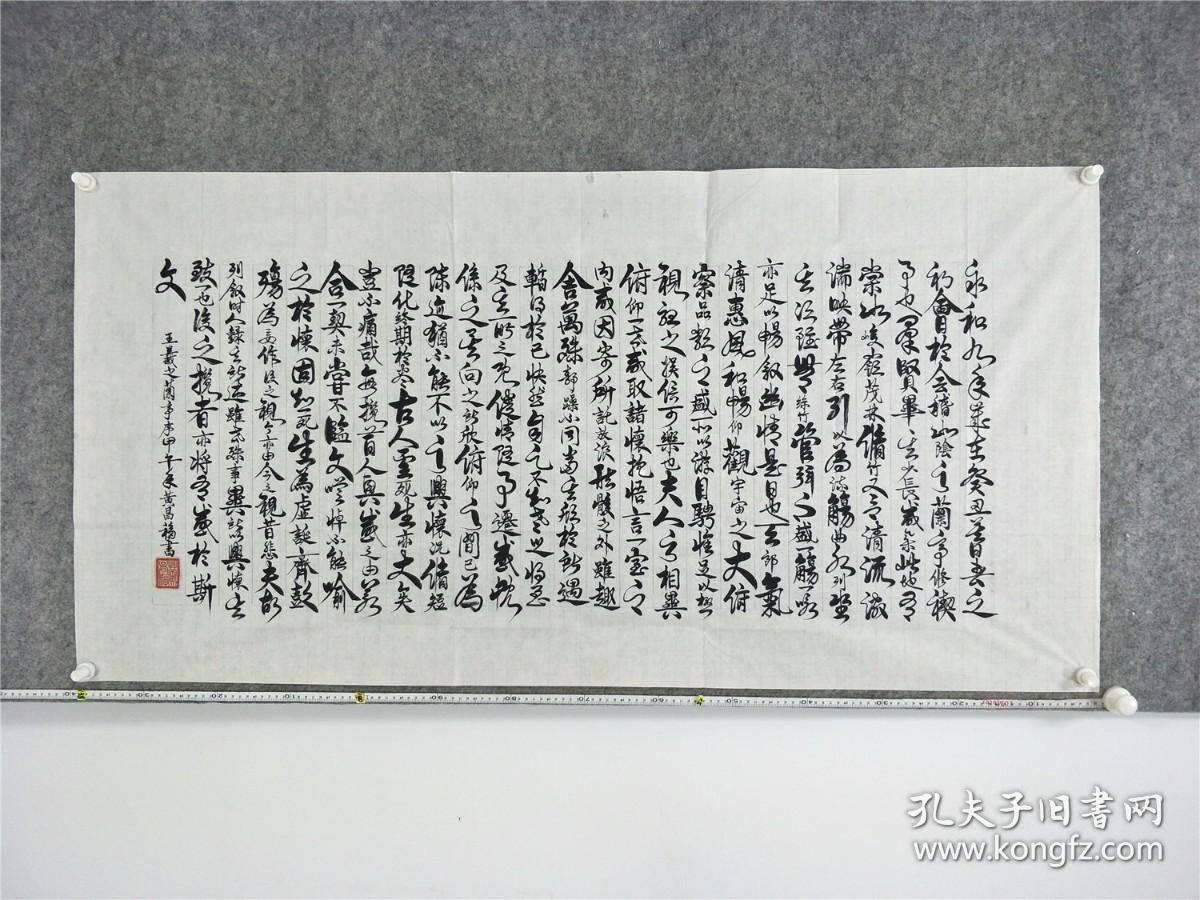 永和九年歲在癸丑暮春之
初會於會稽山陰之蘭亭修禊
事也羣賢畢至少長咸集此地有
崇山峻嶺茂林脩竹又有清流激
湍映帶左右引以為流觴曲水列坐
其次雖無絲竹管弦之盛一觴一詠
亦足以暢敘幽情是日也天朗氣
清惠風和暢仰觀宇宙之大俯
察品類之盛所以遊目騁懷足以極
視聽之娛信可樂也夫人之相與
俯仰一世或取諸懷抱悟言一室之
內或因寄所託放浪形骸之外雖趣
舍萬殊靜躁不同當其欣於所遇
暫得於己快然自足不知老之將至
及其所之既倦情隨事遷感慨
係之矣向之所欣俯仰之間已為
陳迹猶不能不以之興懷況脩短
隨化終期於盡古人云死生亦大矣
豈不痛哉每攬昔人興感之由若
合一契未嘗不臨文嗟悼不能喻
之於懷固知死生為虛誕齊彭
殤為妄作後之視今亦由今之視昔悲夫故
列敘時人錄其所述雖世殊事異所以興懷其
致一也後之攬者亦將有感於斯
文
王羲之蘭亭序甲午年黃昌福書
孔夫子旧书网
www.kongfz.com